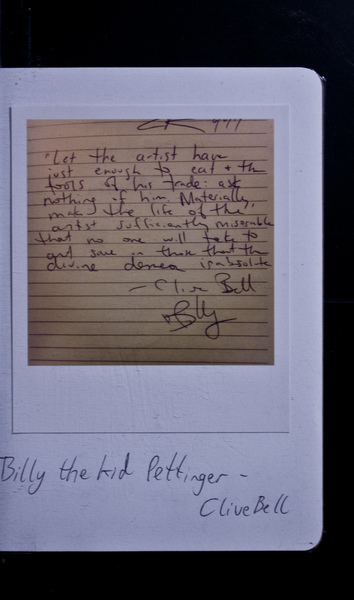 "Let the artist have
just enough to eat + the
tools of his trade: ask
nothing of him. Materially,
make the life of the
artist sufficiently miserable
that no one will take to
art save in those that the
divine is absolute
- Clive Bell
Billy
Billy the kid Pettinger -
Clive Bell